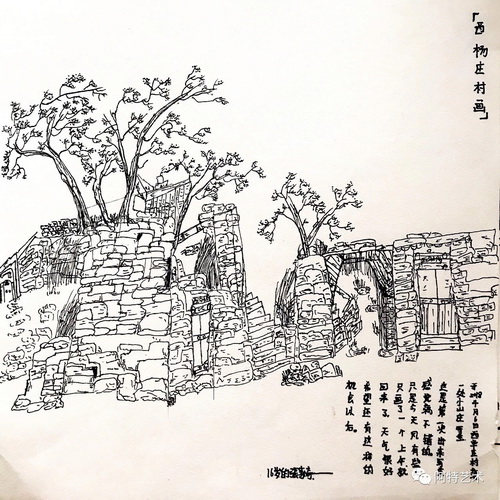 「西杨庄村画」
这是第一次出来写生
感觉确不错的
只是今天风有些
只画了一个上午就
回来了,天气很好
希望还有这样的
机会以后。
16岁的
阿特艺术